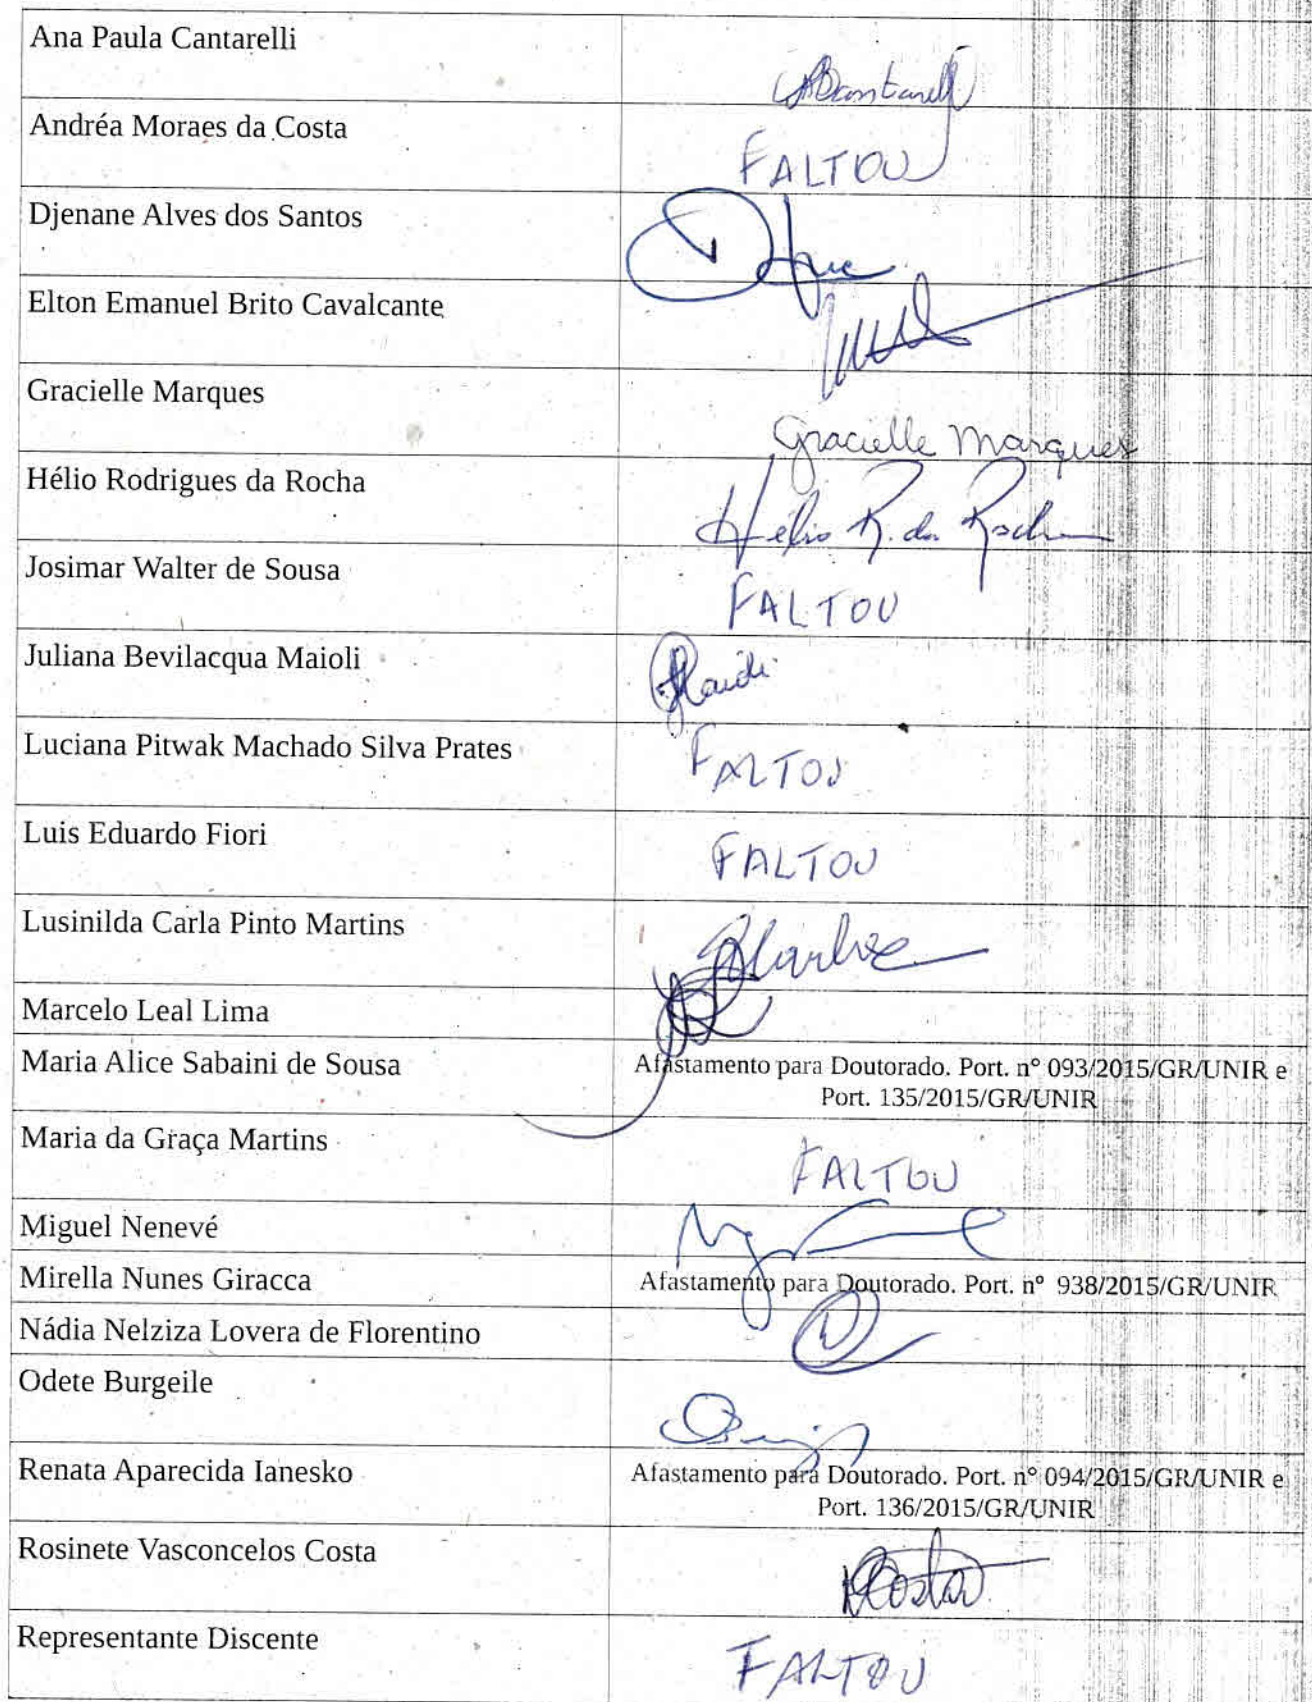 Ana Paula Cantarelli
Andréa Moraes da Costa
FALTOU
Djenane Alves dos Santos
Elton Emanuel Brito Cavalcante
Gracielle Marques
Gracielle Marques
Hélio Rodrigues da Rocha
Hélio R. da Rocha
Josimar Walter de Sousa
FALTOU
Juliana Bevilacqua Maioli
Luciana Pitwak Machado Silva Prates
FALTOU
Luis Eduardo Fiori
FALTOU
Lusinilda Carla Pinto Martins
Marcelo Leal Lima
Maria Alice Sabaini de Sousa
Afastamento para Doutorado. Port. nº 093/2015/GR/UNIR e
Port. 135/2015/GR/UNIR
Maria da Graça Martins
FALTOU
Miguel Nenevé
Mirella Nunes Giracca
Afastamento para Doutorado. Port. nº 938/2015/GR/UNIR
Nádia Nelziza Lovera de Florentino
Odete Burgeile
Renata Aparecida Ianesko
Afastamento para Doutorado. Port. nº 094/2015/GR/UNIR e
Port. 136/2015/GR/UNIR
Rosinete Vasconcelos Costa
Representante Discente
FALTOU